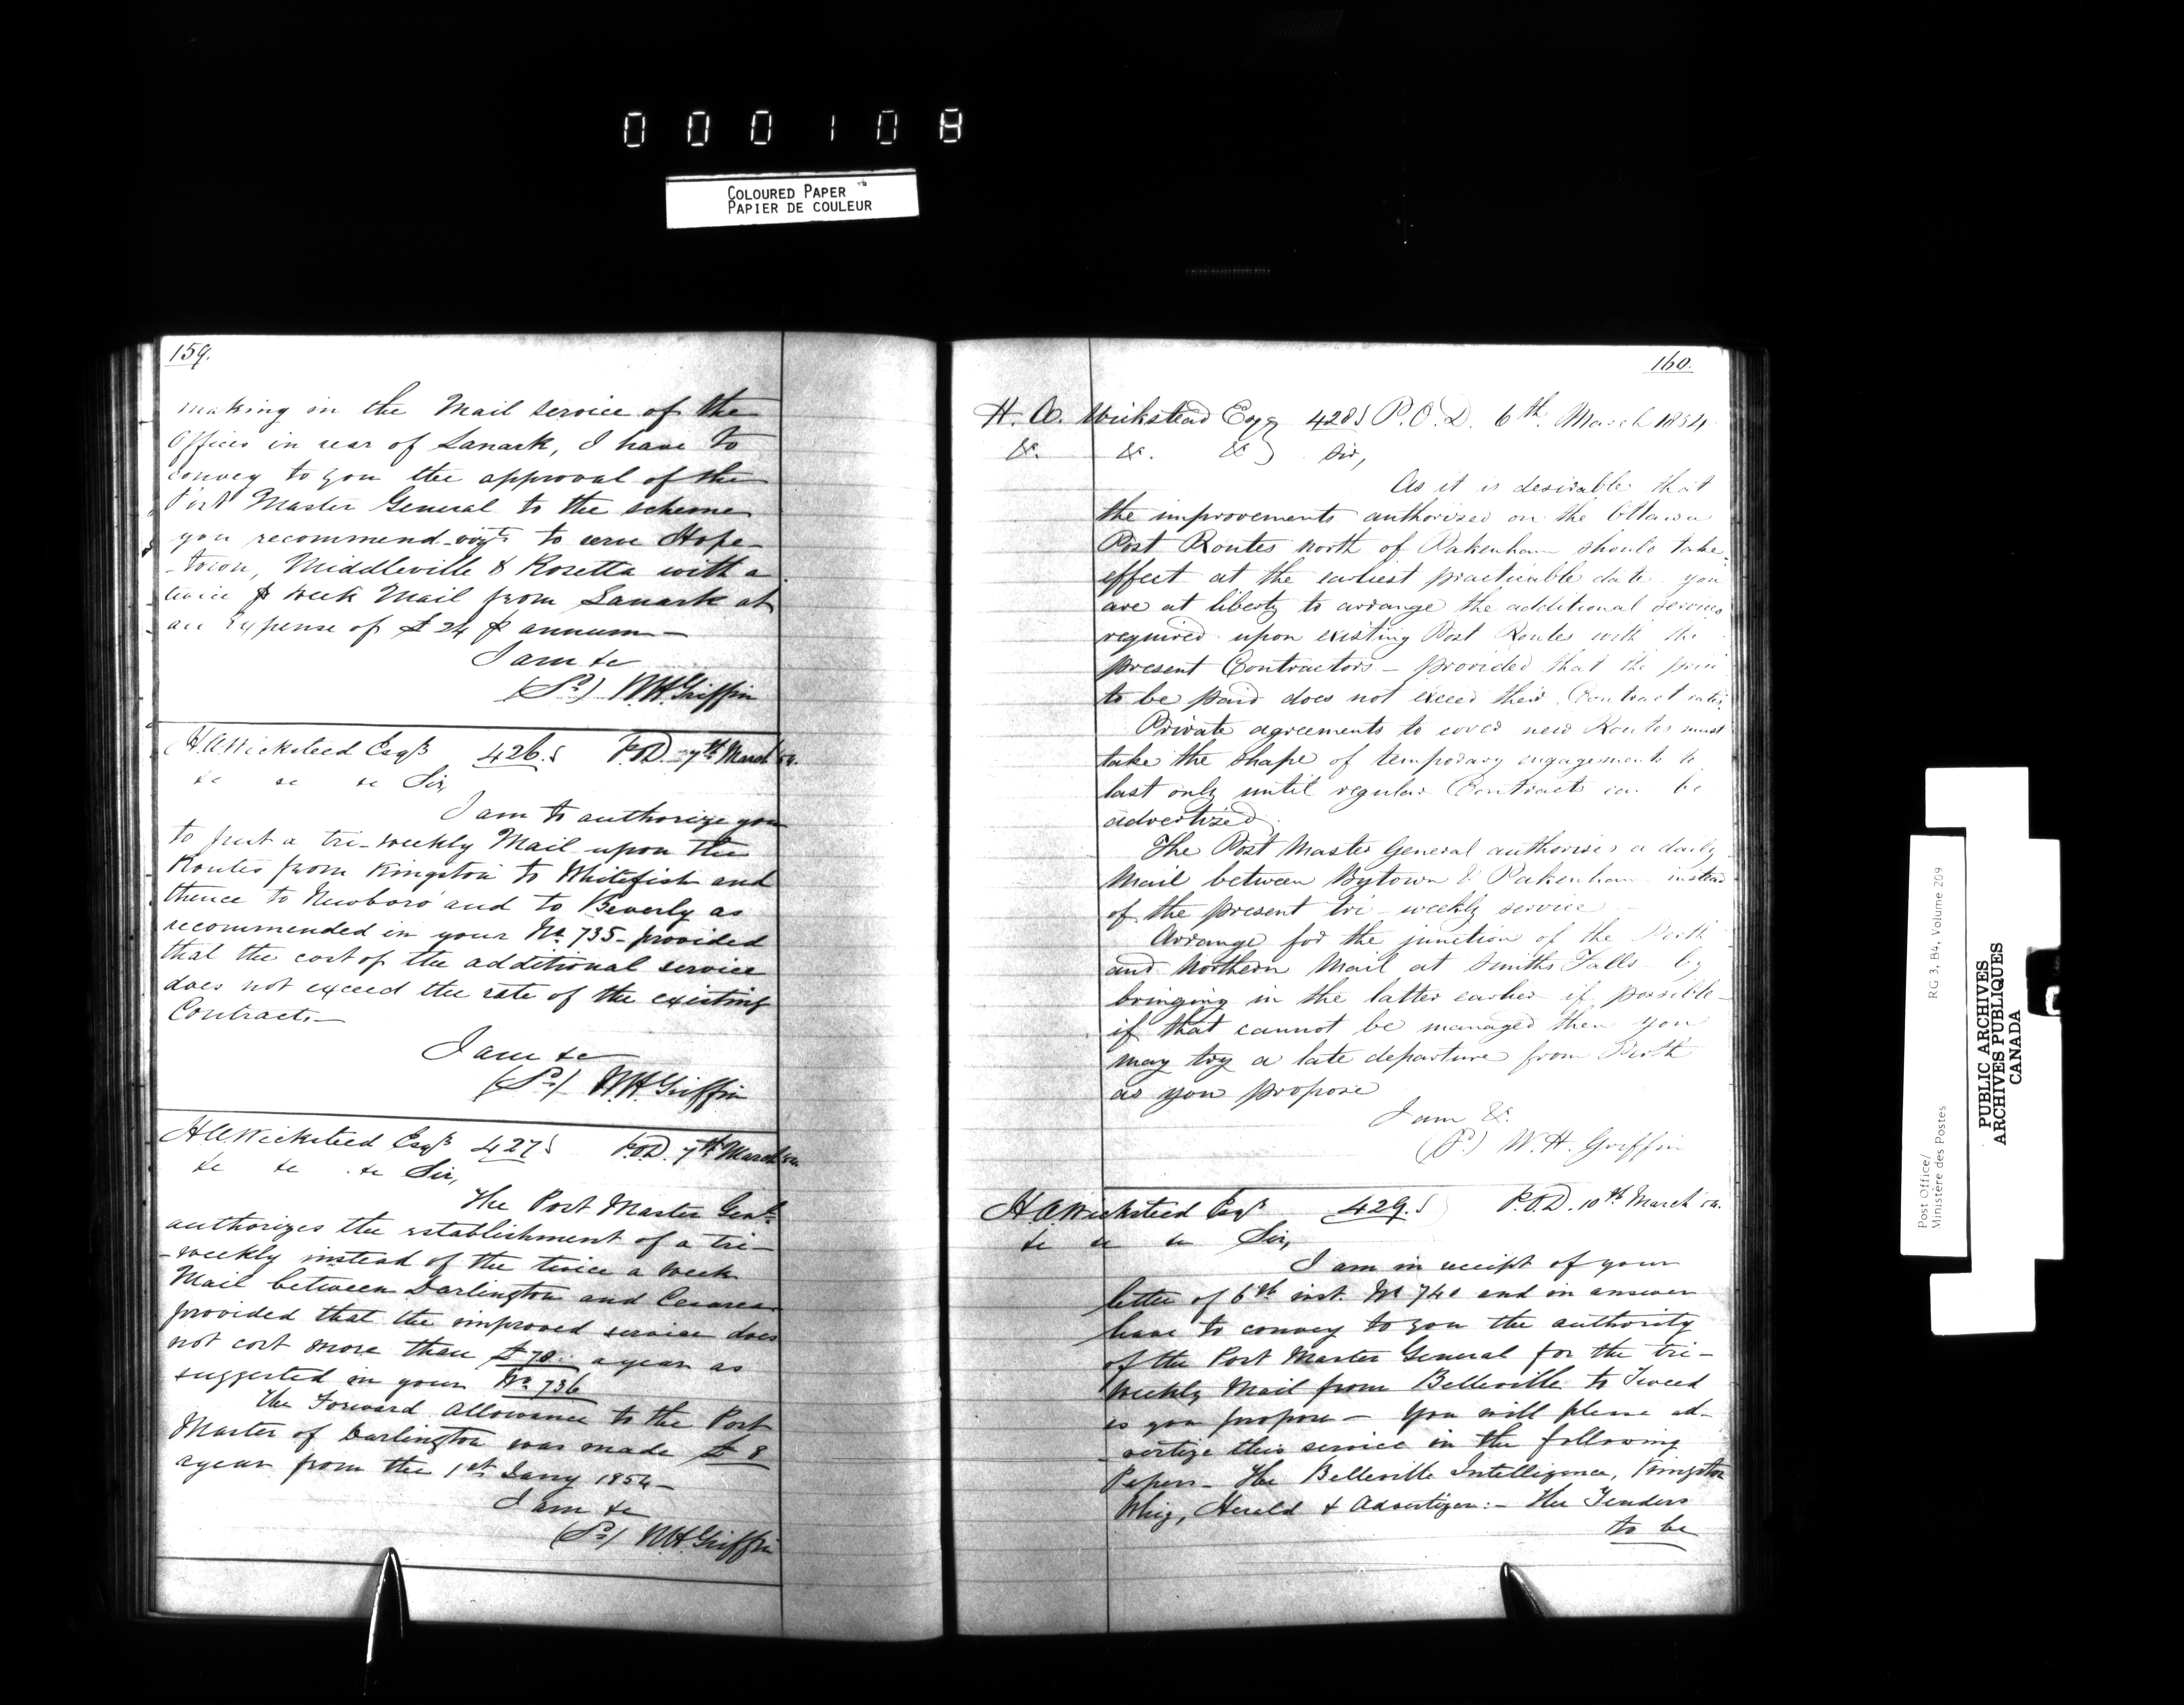 000108
COLOURED PAPER
PAPIER DE COULEUR
159.
making in the Mail service of the
Offices in rear of Lanark, I have to
convey to you the approval of the
Post Master General to the scheme
you recommend viz: to serve Hope-
-town, Middleville & Rosetta with a
twice ⅌ week Mail from Lanark at
an expense of £24 ⅌ annum—
I am &c
(Sd) W.H. Griffin
H.A. Wicksteed Esqr 426.S P.O.D. 7th March 54.
&c &c &c Sir,
I am to authorize you
to put a tri-weekly Mail upon the
Routes from Kingston to Whitefish and
thence to Newboro' and to Beverly as
recommended in your No. 735- provided
that the cost of the additional service
does not exceed the rate of the existing
Contract.—
I am &c
(Sd) W.H. Griffin
H.A. Wicksteed Esqr 427 S P.O.D. 7th March 54.
&c &c &c Sir,
The Post Master Genl.
authorizes the establishment of a tri-
-weekly instead of the twice a week
Mail between Darlington and Cesarea
provided that the improved service does
not cost more than £70.. a year as
suggested in your No. 736
The Forward Allowance to the Post
Master of Darlington was made £8
a year from the 1st Jany 1854—
I am &c
(Sd) W.H. Griffin
160.
H. A. Wickstead Esqr 428S P.O.D. 6th March 1854
&c. &c. &c Sir,
As it is desirable that
the improvements authorized on the Ottawa
Post Routes north of Pakenham should take
effect at the earliest practicable date you
are at liberty to arrange the additional services
required upon existing Post Routes with the
present Contractors - provided that the price
to be paid does not exceed their Contract rates.
Private agreements to cover new Routes must
take the shape of temporary engagements to
last only until regular Contracts can be
advertized.
The Post Master General authorises a daily
Mail between Bytown & Pakenham instead
of the present tri-weekly service—
Arrange for the junction of the Perth
and Northern Mail at Smiths Falls by
bringing in the latter earlier if possible—
if that cannot be managed then you
may try a late departure from Perth
as you propose
I am &c.
(S.) W.H. Griffin
H.A. Wicksteed Esqr 429.S P.O.D. 10th March 54.
&c &c &c Sir,
I am in receipt of your
letter of 6th inst. No 740 and in answer
have to convey to you the authority
of the Post Master General for the tri-
weekly Mail from Belleville to Tweed
as you propose— You will please ad-
-vertize this service in the following
Papers- The Belleville Intelligencer, Kingston
Whig, Herald & Advertizer:- The Tenders
to be
Post Office/
Ministère des Postes
RG 3, B4, Volume 209
PUBLIC ARCHIVES
ARCHIVES PUBLIQUES
CANADA